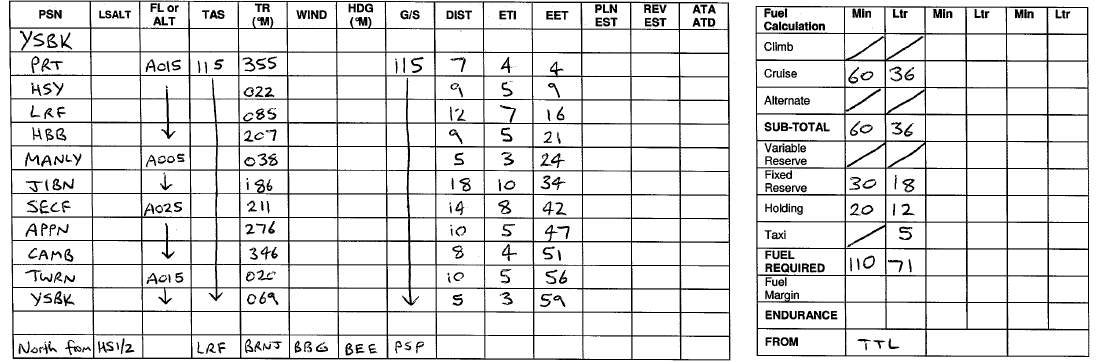 PSN LSALT FL or ALT TAS TR (°M) WIND HDG (°M) G/S DIST ETI EET PLN EST REV EST ATA ATD
YSBK
PRT A015 115 355 115 7 4 4
HSY 022 9 5 9
LRF 085 12 7 16
HBB 207 9 5 21
MANLY A005 038 5 3 24
JIBN 186 18 10 34
SECF A025 211 14 8 42
APPN 276 10 5 47
CAMB 346 8 4 51
TWRN A015 020 10 5 56
YSBK 069 5 3 59
North from HS1/2 LRF BRNJ BBG BEE PSP
Fuel Calculation Min Ltr Min Ltr Min Ltr
Climb
Cruise 60 36
Alternate
SUB-TOTAL 60 36
Variable Reserve
Fixed Reserve 30 18
Holding 20 12
Taxi 5
FUEL REQUIRED 110 71
Fuel Margin
ENDURANCE
FROM TTL